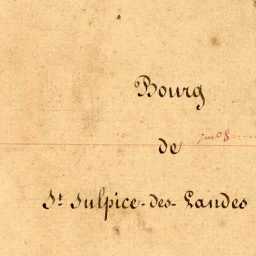 Bourg
de
St Sulpice-des-Landes